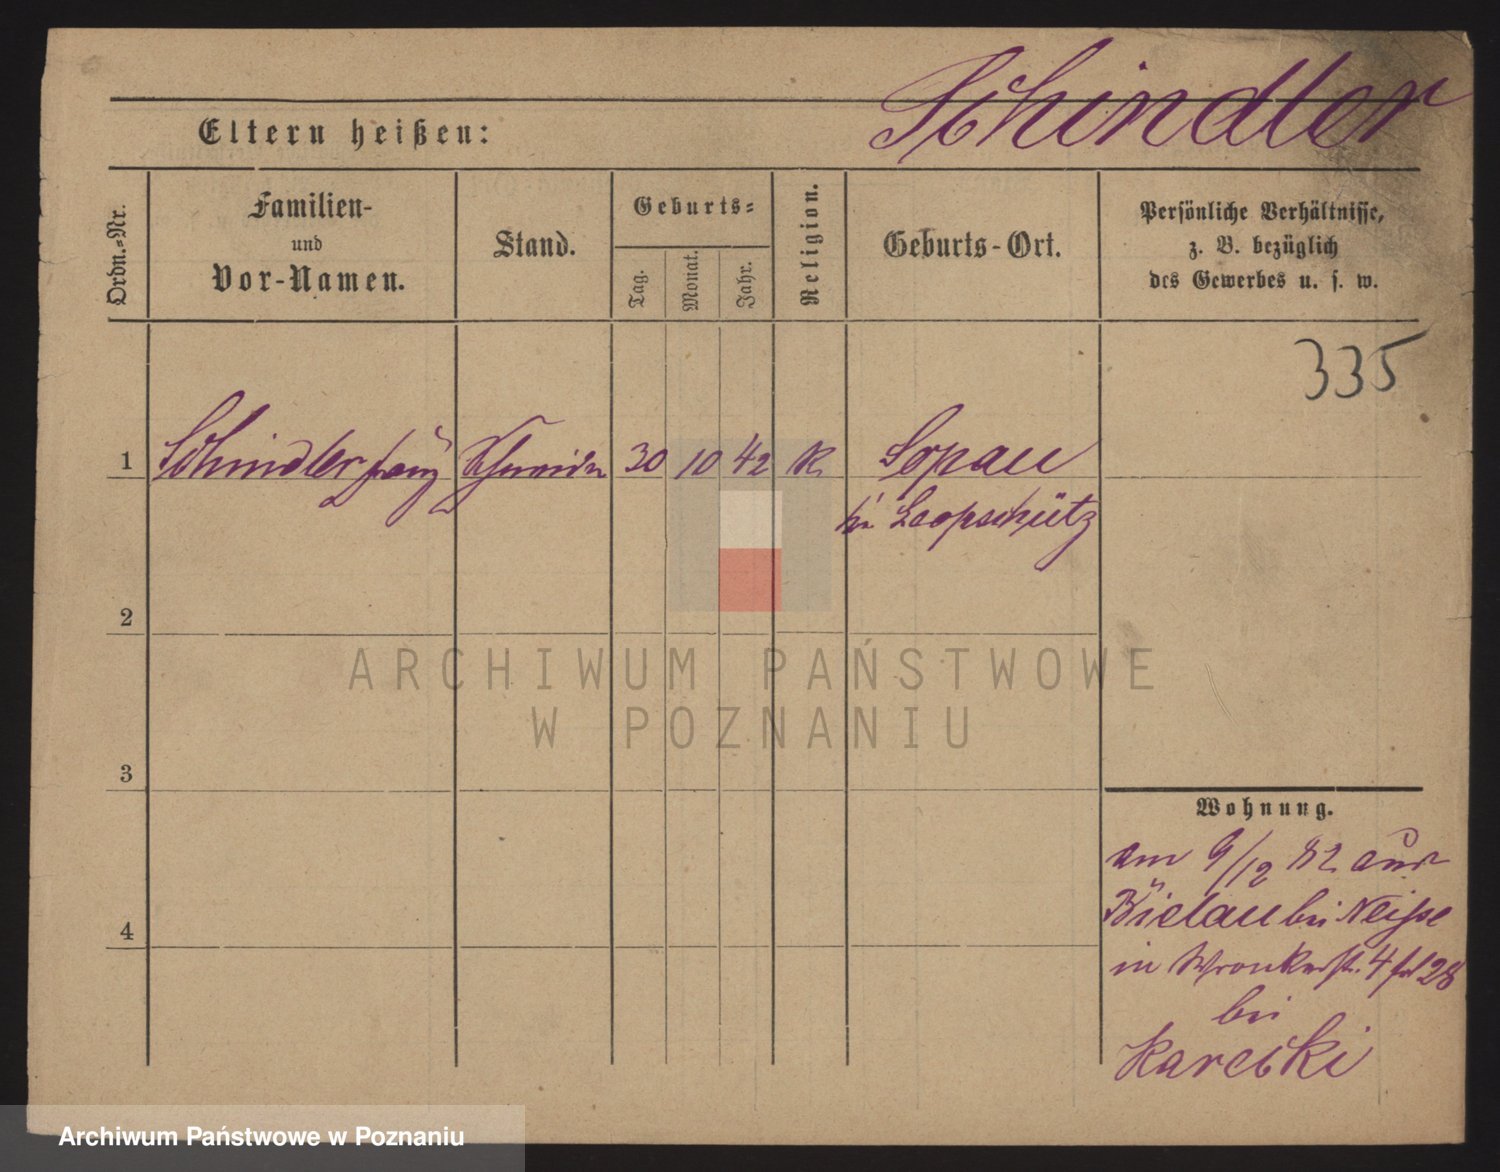 Schindler
Eltern heißen:
Ordn.-Nr.
Familien-
und
Vor-Namen.
Stand.
Geburts-
Tag.
Monat.
Jahr.
Religion.
Geburts-Ort.
Persönliche Verhältnisse,
z. B. bezüglich
des Gewerbes u. s. w.
335
1 Schindler Franz Schneider 30 10 42 K. Sopau
bei Leopschütz
2
ARCHIWUM PAŃSTWOWE
W POZNANIU
3
4
Wohnung.
am 9/12 82 aus
Bielau bei Neisse
in Wronkerstr. 4 28
bei
Karecki
Archiwum Państwowe w Poznaniu